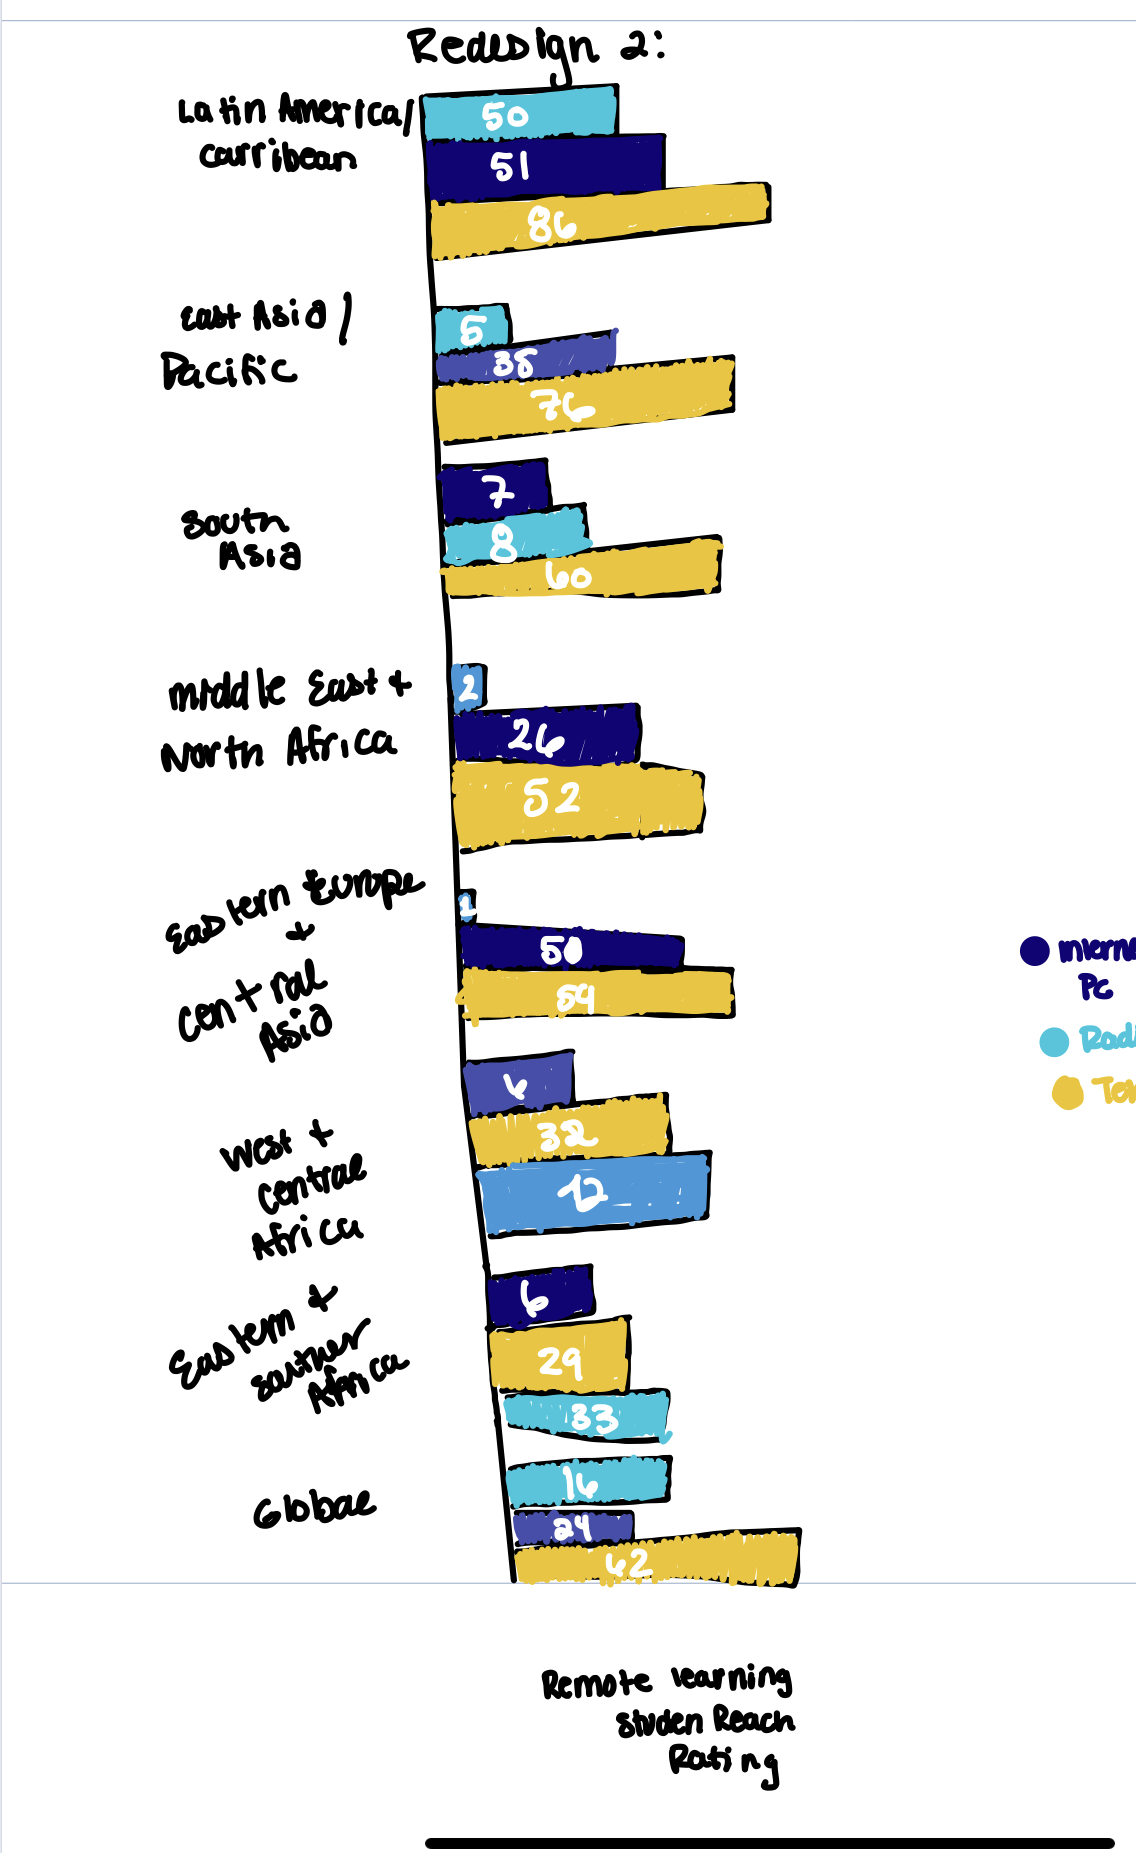 Redesign 2:
Latin America/
Carribean
50
51
86
East Asia/
Pacific
5
38
76
South
Asia
7
8
60
Middle East +
North Africa
2
26
52
Eastern Europe
+
Central
Asia
1
50
59
West +
Central
Africa
32
12
Eastern +
Souther
Africa
6
29
33
Global
16
24
62
Interne
PC
Radi
Te
Remote learning
Studen Reach
Rating